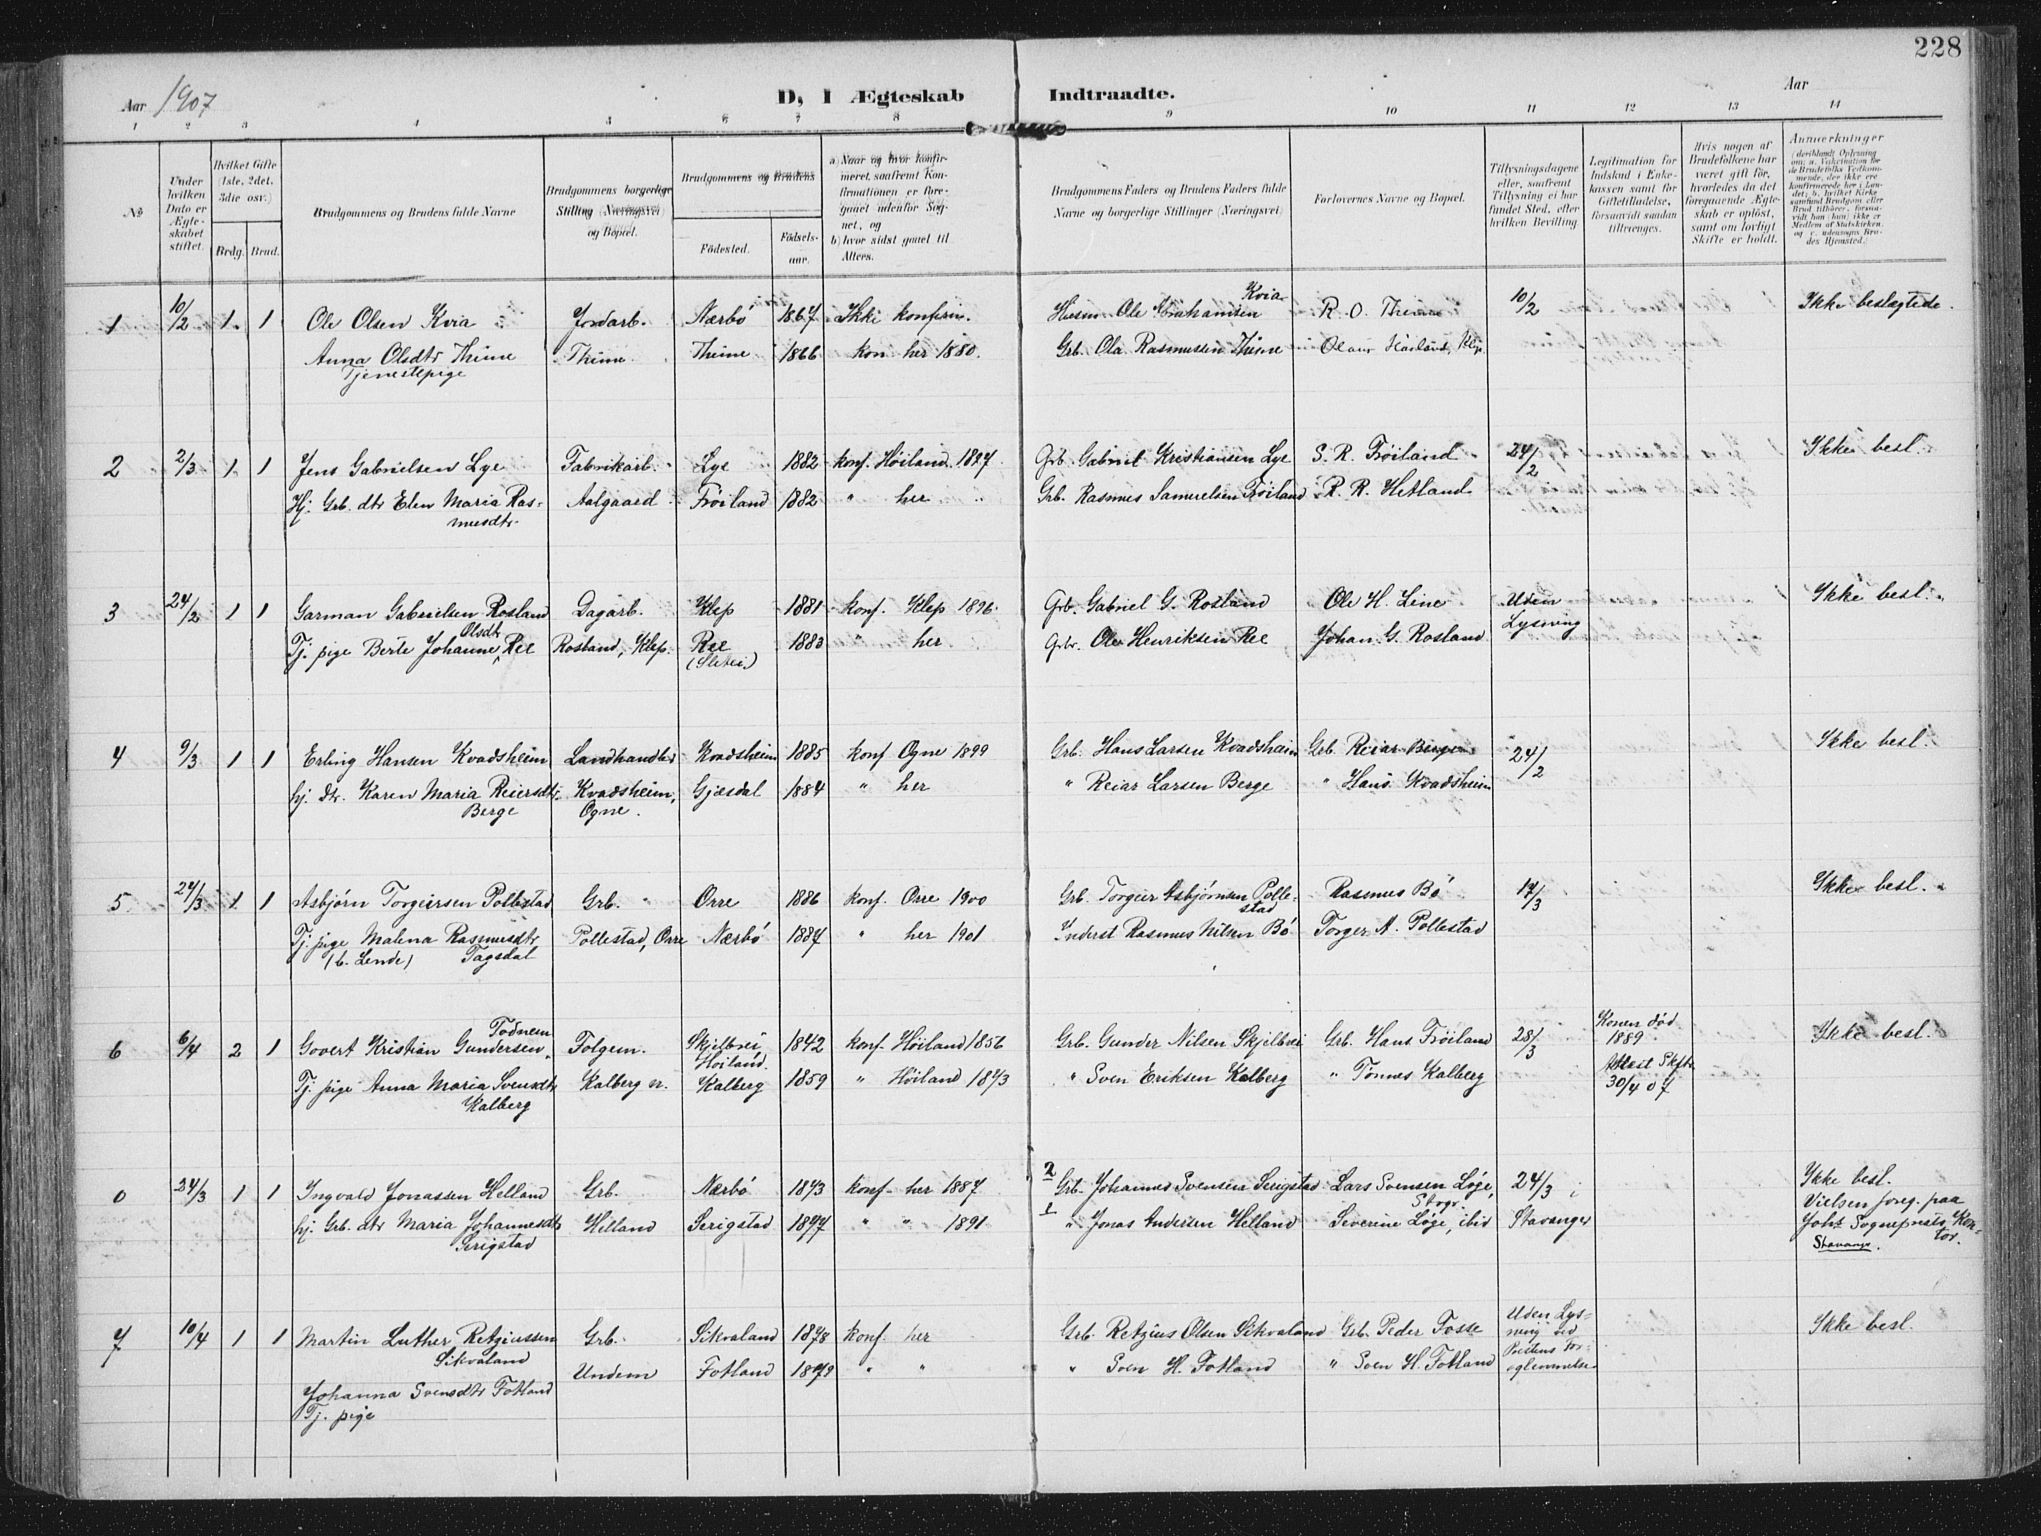 228
Aar 1907
D, I Ægteskab Indtraadte.
Aar
1 2 3 4 5 6 7 8 9 10 11 12 13 14
No
Under hvilken Dato er Ægteskabet stiftet.
Hvilket Gifte (1ste, 2det, 3die osv.)
Brdg. Brud.
Brudgommens og Brudens fulde Navne
Brudgommens borgerlige Stilling (Næringsvei) og Bopæl.
Brudgommens og Brudens
Fødested. Fødselsaar.
a) Naar og hvor konfirmeret, saafremt Konfirmationen er foregaaet udenfor Sognet, og
b) hvor sidst gaaet til Alters.
Brudgommens Faders og Brudens Faders fulde Navne og borgerlige Stillinger (Næringsvei)
Forlovernes Navne og Bopæl.
Tillysningsdagene eller, saafremt Tillysning ei har fundet Sted, efter hvilken Bevilling
Legitimation for Indskud i Enkekassen samt for Giftetilladelse, forsaavidt saadan tiltrænges.
Hvis nogen af Brudefolkene har været gift før, hvorledes da det foregaaende Ægteskab er opløst, samt om lovligt Skifte er holdt.
Anmerkninger (deriblandt Oplysning om: a. Vakcination for de Brudefolks Vedkommende, der ikke ere konfirmerede her i Landet; b. hvilket Kirkesamfund Brudgom eller Brud tilhører, forsaavidt han (hun) ikke er Medlem af Statskirken, og c. udensogns Brudes Hjemsted.)
1 10/2 1 1 Ole Olsen Kvia Jordarb. Nærbø 1867 Ikke konfirm. Husm Ole Abrahamsen Kvia R. O. Thime 10/2 Ikke beslægtede.
Anna Olsdtr Thime Thime Thime 1866 kon her 1880. Grb. Ola Rasmussen Thime Olaus Haaland, Klep
Tjenestepige
2 2/3 1 1 Jens Gabrielsen Lye Fabrikarb. Lye 1882 konf. Høiland 1897 Grb. Gabriel Kristiansen Lye S. R. Frøiland 24/2 Ikke besl.
Hj. Grb. dtr Elen Maria Ras- Aalgaard Frøiland 1882 " her Grb. Rasmus Samuelsen Frøiland R. R. Hetland
musdtr
3 24/2 1 1 Garman Gabrielsen Rosland Dagarb. Klep 1881 konf. Klep 1896 Grb. Gabriel G. Rosland Ole H. Line Uden Lysning Ikke besl.
Tj. pige Berte Johanne Olsdtr Ree Rosland, Klep. Ree 1883 her Grb. Ole Henriksen Ree Johan G. Rosland
4 9/3 1 1 Erling Hansen Kvadsheim Landhandler Kvadsheim 1885 konf Ogne 1899 Grb. Hans Larsen Kvadsheim Grb. Reiar Berge 24/2 Ikke besl.
hj. dtr. Karen Maria Reiersdtr, Kvadsheim, Gjæsdal 1884 " her " Reiar Larsen Berge " Hans Kvadsheim
Berge Ogne.
5 24/3 1 1 Asbjørn Torgeirsen Pollestad Grb. Orre 1886 konf. Orre 1900 Grb. Torgeir Asbjørnsen Pollestad Rasmus Bø 17/3 Ikke besl.
Tj. pige Malena Rasmusdtr Pollestad, Orre Nærbø 1887 " her 1901 Inderst Rasmus Nilsen Bø Torger A. Pollestad
(b. Lende) Tagsdal
6 6/4 2 1 Govert Kristian Gundersen Todnem Folgem. Skjilbrei Høiland. 1842 konf Høiland 1856 Grb. Gunder Nilsen Skjilbrei Grb. Hans Frøiland 28/3 Konen død 1889 Ikke besl.
Tj. pige Anna Maria Svensdtr Kalberg n. Kalberg 1859 " Høiland 1873 " Sven Eriksen Kalberg " Tønnes Kalberg Attest Skfte 30/4 07
Kalberg
0 24/3 1 1 Ingvald Jonassen Helland Grb. Nærbø 1873 konf. her 1887 2 Grb. Johannes Svensen Serigstad Lars Svensen Løge, 24/3 i Ikke besl.
hj. Grb. dtr Maria Johannesdtr Helland Serigstad 1877 " " 1891 1 " Jonas Andersen Helland Severine Løge, ibid Stavanger Vielsen foreg. paa
Serigstad Johs Sognepræsts Kontor. Stavanger.
7 10/4 1 1 Martin Luther Retziussen Grb. Sikvaland 1878 konf. her Grb. Retzius Olsen Sikvaland Grb. Peder Fosse Uden Lysning ved Ikke besl.
Sikvaland Undem Fotland 1879 " " " Sven H. Fotland " Sven H. Fotland Prestens Forglemmelse
Johanna Svensdtr Fotland
Tj. pige